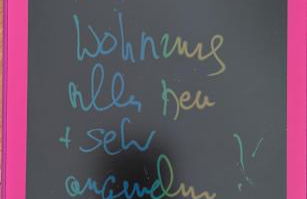 Wohnung
alles neu
+ sehr
angenehm !